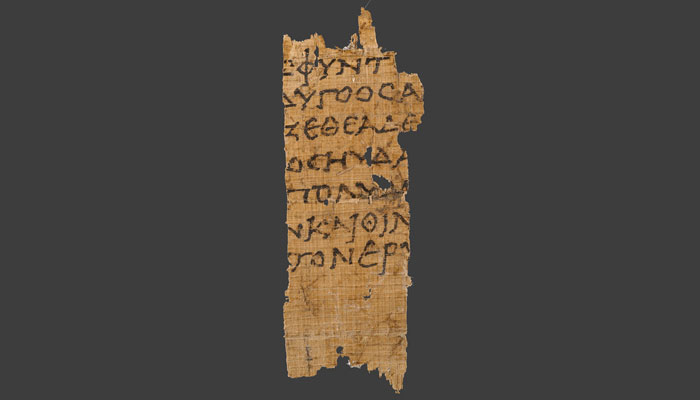 ΕΦΥΝΤ
ΥΓΟΟϹΑ
ΞΕΘΕΑΔΕ
ΟϹΗΥΔΑ
ΠΟΛΥ
ΝΚΑΙΘΙΝ
ΤΟΝΕΡ